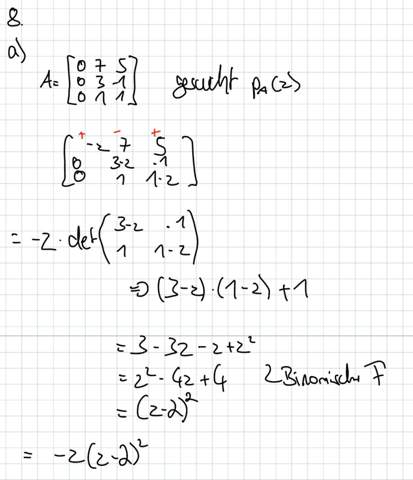 8.
a)
A = [0 7 5
0 3 -1
0 1 1] gesucht p_A(z)
+ - +
[-z 7 5
0 3-z -1
0 1 1-z]
= -z · det(3-z -1
1 1-z)
⇒ (3-z)·(1-z)+1
= 3-3z-z+z²
= z²-4z+4 2 Binomische F
= (z-2)²
= -z(z-2)²